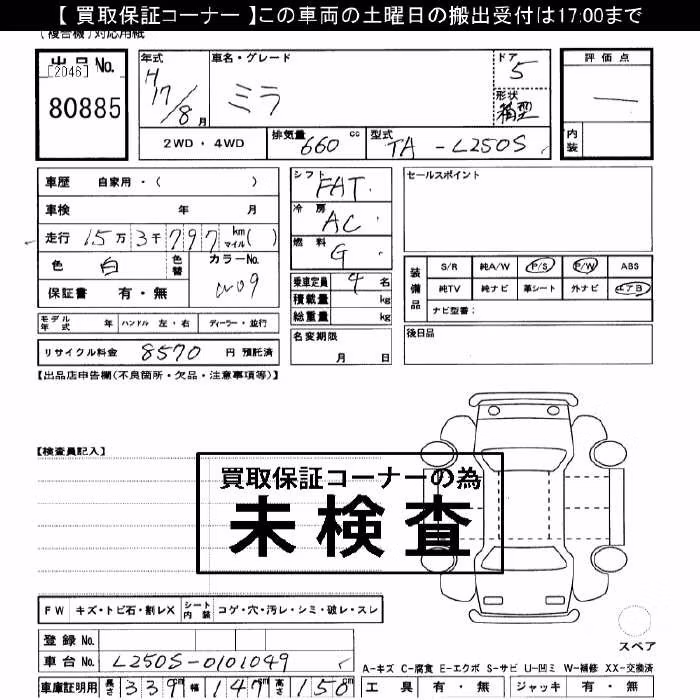 【 買取保証コーナー 】この車両の土曜日の搬出受付は17:00まで
(複合機)対応用紙
出品 No.
[2046]
80885
年式 H17/8 月
車名・グレード ミラ
ドア 5
形状 箱型
評価点 —
内装
2WD・4WD 排気量 660 cc 型式 TA-L250S
車歴 自家用・( )
車検 年 月
走行 15万 3千 797 km マイル ( )
色 白 色替 カラーNo. W09
保証書 有・無
シフト FAT
冷房 AC
燃料 G
乗車定員 4 名
積載量 kg
総重量 kg
セールスポイント
装備品 S/R 純A/W P/S P/W ABS
純TV 純ナビ 革シート 外ナビ エアB
ナビ型番:
モデル年式 年 ハンドル 左・右 ディーラー・並行
名変期限 月 日
後日品
リサイクル料金 8570 円 預託済
【出品店申告欄(不良箇所・欠品・注意事項等)】
【検査員記入】
買取保証コーナーの為
未検査
FW キズ・トビ石・割レX シート内装 コゲ・穴・汚レ・シミ・破レ・スレ
スペア
登録 No.
車台 No. L250S-0101049
A-キズ C-腐食 E-エクボ S-サビ U-凹ミ W-補修 XX-交換済
車庫証明用 長さ 339 cm 幅 147 cm 高さ 150 cm
工具 有・無 ジャッキ 有・無